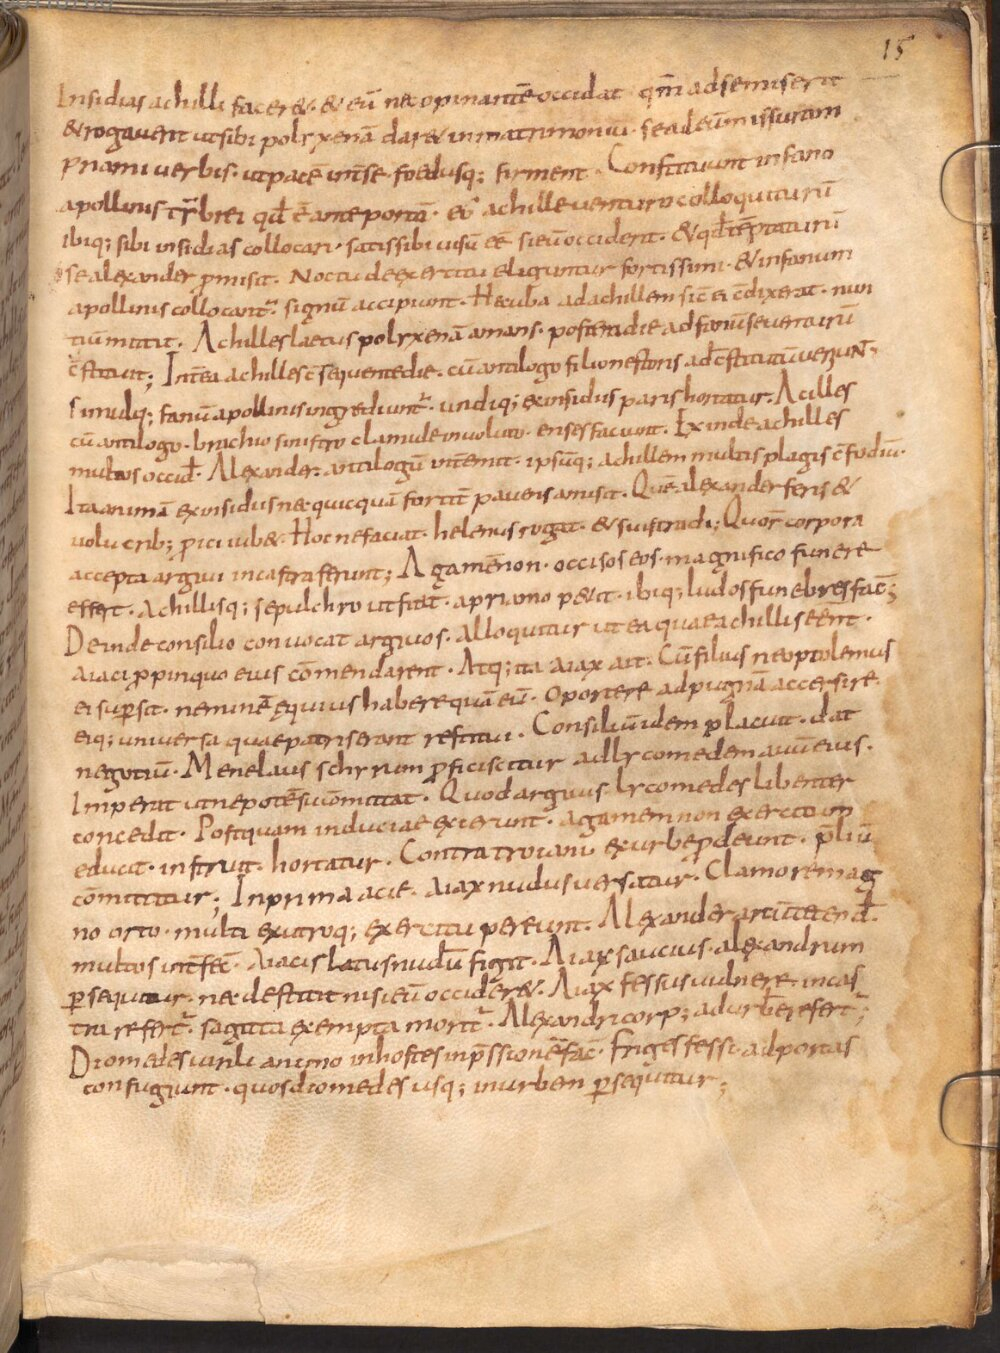 15
Insidias achilli facer& & eū nec opinantē occidat qm̄ ad se miserit
& rogaverit ut sibi polyxenā dar& in matrimoniū · se ad eum missuram
priami verbis · ut pacē int̄ se foedusq; firment · Constituunt in fano
apollinis tȳbrei qd̄ ē ante portā · eo achille venturo colloquiturū
ibiq; sibi insidias collocari · satis sibi visū eē si eū occiderit · & qd̄ tēptaturū
se alexander p̄misit · Noctu de exercitu eliguntur fortissimi · & in fanum
apollinis collocant̄ · signū accipiunt · Hecuba ad achillem sic̄ ei c̄dixerat · nun
tiū mittit · Achilles laetus polyxenā amans · postera die ad fanū se venturū
c̄stituit; Int̄ea achilles c̄sequente die · cū antilogo filio nestoris ad c̄stitutū veniuNT ·
Simulq; fanū apollinis ingrediunt̄ · undiq; ex insidiis paris hortatur · Acilles
cū antilogo · brachio sinistro clamide involuto · enses faciunt · Exinde achilles
multos occid̄ · Alexander · antilogū int̄emit · ipsūq; achillem multis plagis c̄fodiū ·
Ita animā ex insidiis nequicquā fortit̄ pavens amisit · Que alexander feris &
volucrib; p̄ici iub& · Hoc ne faciat · helenus rogat · & suis tradi; Quor̄ corpora
accepta argivi in castra ferunt; Agamēnon · occisos eos · magnifico funere
effert · Achillisq; sepulchru ut fiat · a priamo petit · ibiq; ludos funebres fac̄;
Deinde consilio convocat argivos · alloquitur ut ea quae achillis eēnt ·
aiaci p̄pinquo eius cōmendarent · Atq; ita aiax ait · Cū filius neoptolemus
ei sup̄sit · neminē equius habere quā eū · Oportere ad pugnā accersire
eiq; universa quae patris erant restitui · Consiliū idem placuit · dat
negotiū · Menelaus schyrum p̄ficiscitur ad lycomedem avū eius ·
Imperat ut nepotē suū mittat · Quod argivis lycomedes libenter
concedit · Postquam induciae exierunt · agamemnon exercitum
educit · instruit · hortatur · Contra troiani ex urbe p̄deunt · p̄liū
cōmittitur; In prima acie · aiax nudus versatur · Clamore mag
no orto · multi ex utroq; exercitu pereunt · Alexander arcū tetend̄ ·
multos int̄fec̄ · Aiacis latus nudū figit · Aiax saucius · alexandrum
p̄sequitur · nec destitit nisi eū occider& · Aiax fessus vulnere · in cas
tra refert̄ · sagitta exempta morit̄ · Alexandri corp; ad urbē refert̄;
Diomedes virili animo in hostes inp̄ssionē fac̄ · Friges fessi · ad portas
confugiunt · quos diomedes usq; in urbem p̄sequitur;